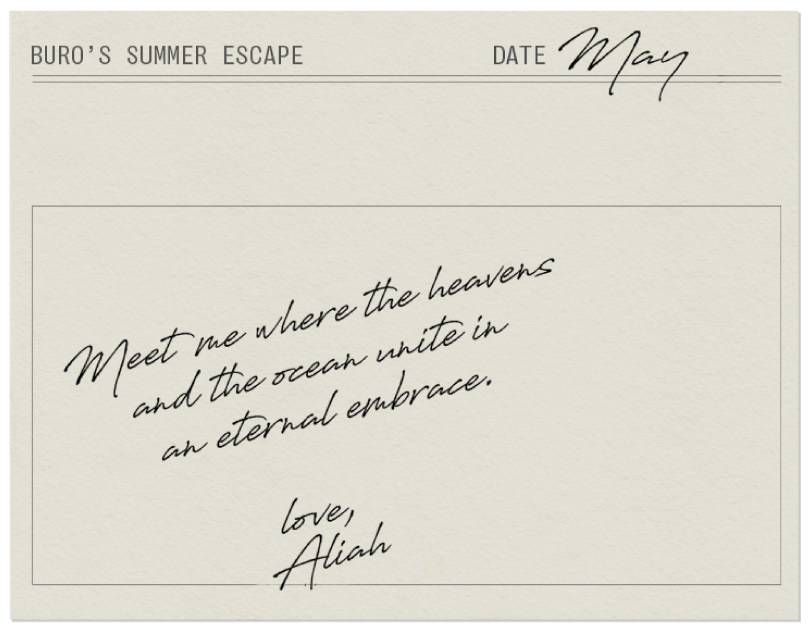 BURO'S SUMMER ESCAPE DATE May
Meet me where the heavens
and the ocean unite in
an eternal embrace.
love,
Aliah